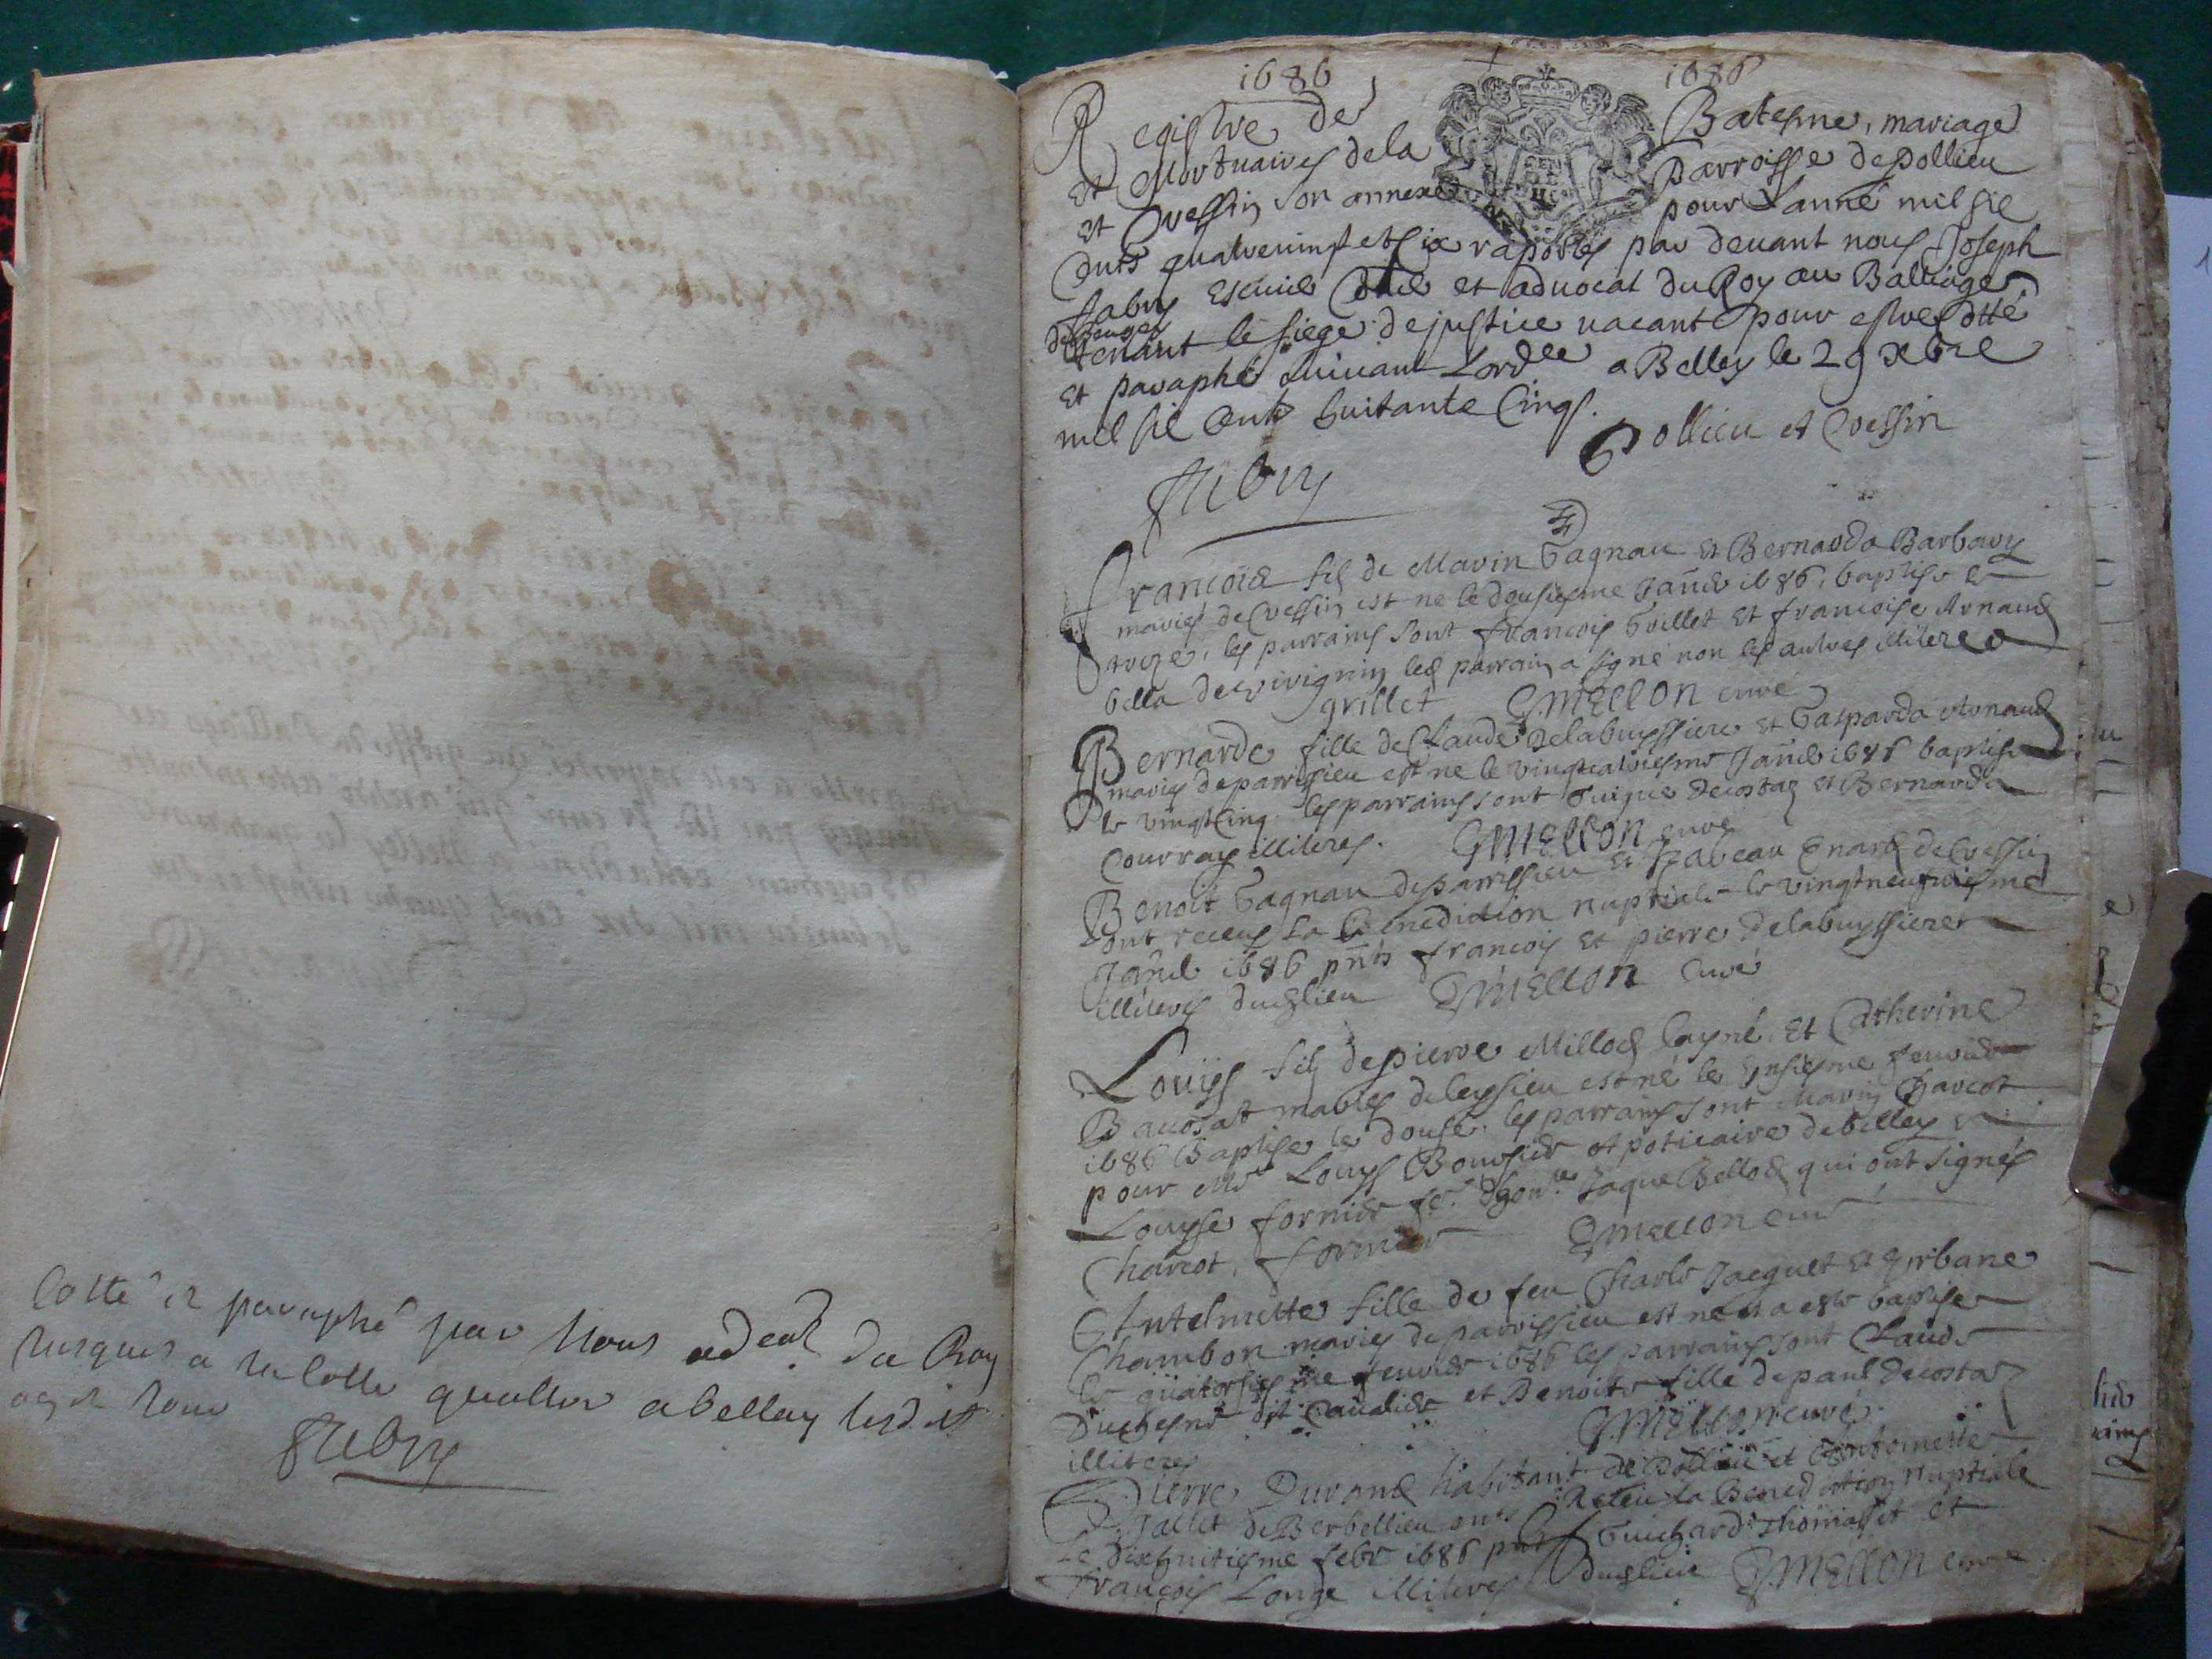 Cotté et paraphé par Nous advocat du Roy
Jusques a la Cotte quattre a belley lesd. jt
an et Jour
Fabry
1686 1686
Registre des Batesme, mariage
et Mortuaires de la parroisse de pollieu
et Cressin son annexe pour Lanné mil sie
Cents quatrevingt et six raportés par devant nous Joseph
fabry Escuier et advocat du Roy au Balliage
de beugey
tenant le siege de justice vacant pour estre Cotté
et paraphé suivant Lordce a Belley le 29 xbre
mil sie Cents huitante Cinq.
Pollieu et Cressin
Fabry
francois fils de Marin Gagnau et Bernarda Barbary
mariés de Cressin est ne le dousiesme Janer 1686, baptise le
treze, les parrains sont francois Grillet et francoise Arnaud
bella de virignin led parrain a signé non les autres illiteres
grillet GMELLON curé
Bernarde fille de Claude Delabuyssiere et Gasparda Arnaud
mariés de parrissieu est ne le vingtcatriesme Janer 1686 baptise
le vingtcinq. les parrains sont Guigue decostas et Bernarda
Courray illiteres. GMELLON curé
Benoit Gagnau de parrissieu et Isabeau Enard de Cressin
ont receus La Benediction nuptiale le vingtneufviesme
Janer 1686 pnts francois et pierre Delabuyssieres
illiteres dud lieu GMELLON Curé
Louys fils de pierre Millod layné, et Catherine
mariés de leysieu est né le Onsiesme fevrier
1686 Baptise le douse. les parrains sont Marin Charcot
pour Mr Louys Boursier Apoticaire de belley et
Louyse fornier fe. Jaque Bellod qui ont signés
Charcot, fornier GMELLON curé
Antelmette fille de feu Charle Jacquet et Urbane
Chambon mariés de parrissieu est ne et a este baptisee
le quatorsiesme fevrier 1686 les parrains sont Claude
Duchesne dit Cavalier et Benoite fille de paul decostas
illiteres GMELLON curé
Pierre Durand habitant de Pollieu et Anthoinette
Gallet de Berbellieu ont Receu la Benediction Nuptiale
Le dixhuitiesme febr 1686 pnts Guichard Thomasset et
francois Longe illiteres dud lieu GMELLON curé